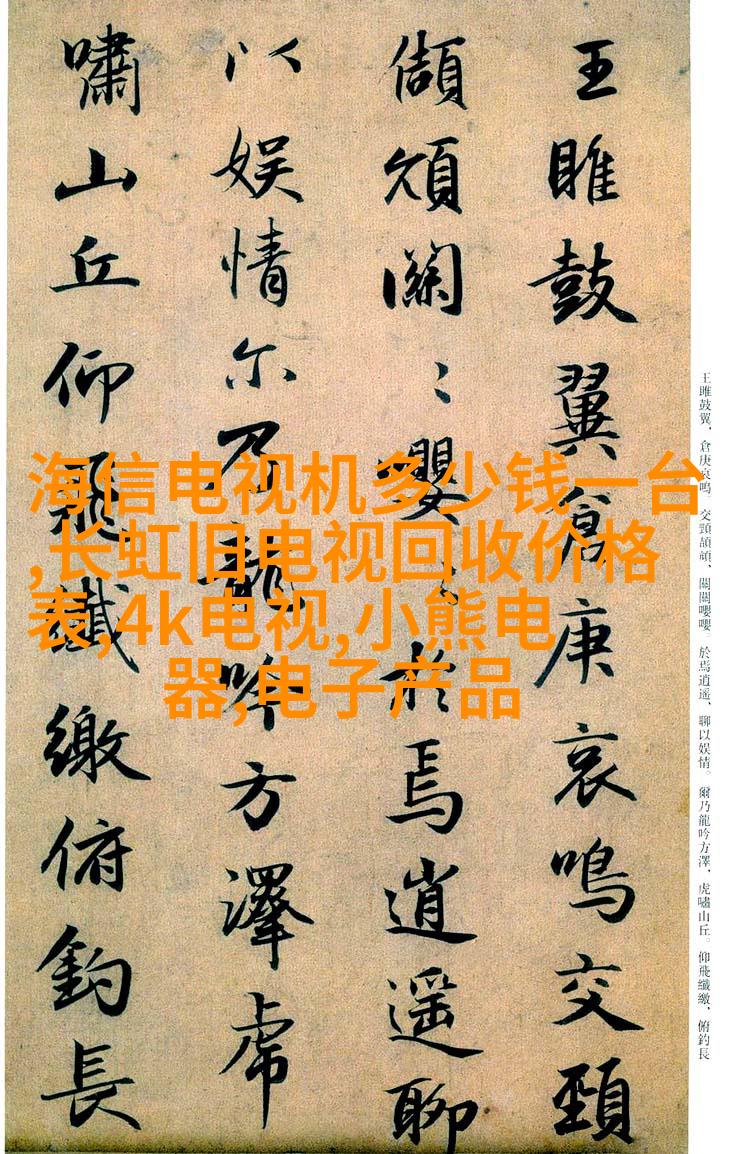 王雎鼓翼倉庚哀鳴交頸
頡頏關〻嚶〻於焉逍遥聊
以娱情尔乃龍吟方澤虎
嘯山丘仰飛纖繳俯釣長
王雎鼓翼，倉庚哀鳴。交頸頡頏，關關嚶嚶。於焉逍遥，聊以娱情。爾乃龍吟方澤，虎嘯山丘。仰飛纖繳，俯釣長
海信电视机多少钱一台
,长虹旧电视回收价格
表,4k电视,小熊电
器,电子产品